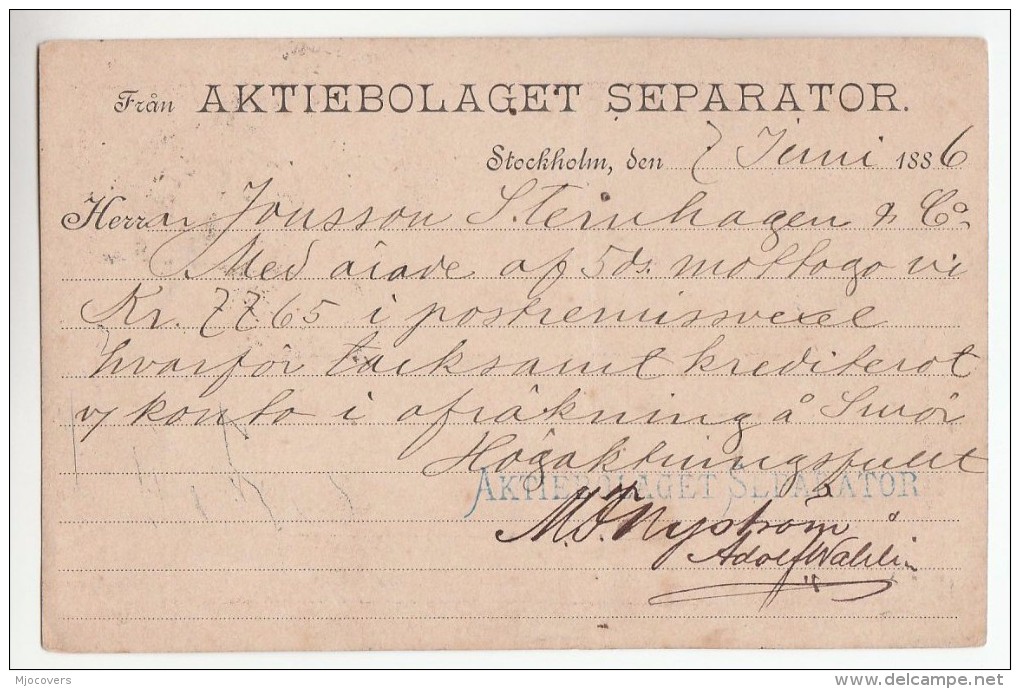 Från AKTIEBOLAGET SEPARATOR.
Stockholm, den 7 Juni 1886
Herrar Jonsson Sternhagen & Co.
Med ärade af 5 ds. mottogo vi
Kr. 77.65 i postremissvexel
hvarför tacksamt krediterat
konto i afräkning å Smör
Högaktningsfullt
AKTIEBOLAGET SEPARATOR
M. F. Nyström
Adolf Wahlin
Mjocovers
www.delcampe.net